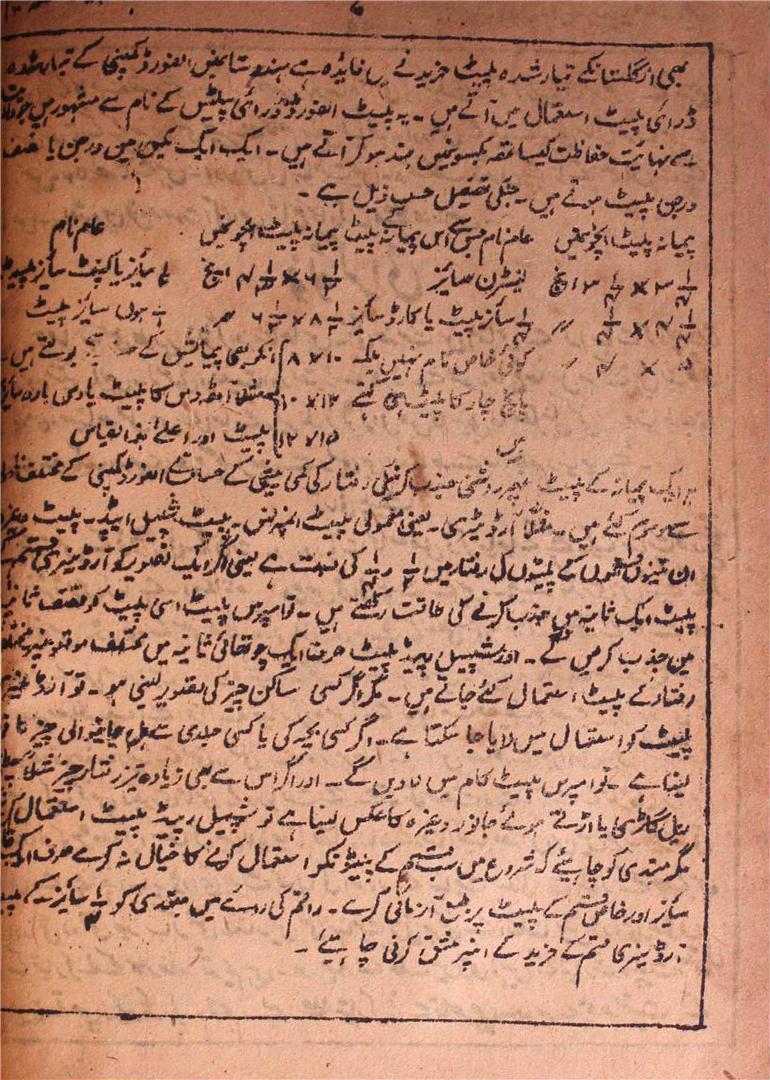 بھی از انگلستانکے تیار شدہ پلیٹ خریدنے فایدہ ہے ہندوستانمیں الفورڈ کمپنی کے تیار شدہ
ڈرائی پلیٹ استعمال میں آتے ہیں ۔ یہ پلیٹ الفورڈ ڈرائی پلیٹس کے نام سے مشہور ہیں
سے نہائیت حفاظت کیساتھ بکسونمیں بند ہو کر آتے ہیں ۔ ایک ایک بکس میں درجن یا نصف
درجن پلیٹ ہوتے ہیں ۔ جنکی تفصیل حسب ذیل ہے ۔
پیمانہ پلیٹ انچونمیں عام نام جس سے اس پیمانہ کے پلیٹ پیمانہ پلیٹ انچونمیں عام نام
۳ ۱/۴ × ۳ ۱/۴ انچ لینٹرن سائیز ۶ ۱/۲ × ۴ ۳/۴ انچ سائیز یا کیبنٹ سائیز پلیٹ
۴ ۱/۴ × ۳ ۱/۴ 〃 ۱/۴ سائیز پلیٹ یا کارڈ سائیز ۸ ۱/۲ × ۶ ۱/۲ 〃 ۱/۱ ہول سائیز پلیٹ
۵ × ۴ 〃 کوئی خاص نام نہیں بلکہ ۱۰ × ۸ انکو بھی پیمائیش کے بولتے ہیں ۔
پانچ چار کا پلیٹ ہی کہتے ۱۲ × ۱۰ مثلاً آٹھ دس کا پلیٹ یا دس بارہ سائیز
ہیں ۱۵ × ۱۲ پلیٹ اور اعلےٰ ہذا القیاس
ہر ایک پیمانہ کے پلیٹ روشنی جذب کرنیکی رفتار کی کمی بیشی کے حساب الفورڈ کمپنی کے مختلف
سے موسوم کئے ہیں ۔ مثلاً آرڈینری ۔ یعنی معمولی پلیٹ امپرس ۔ پلیٹ سپیشیل ریپڈ ۔ پلیٹ وغیرہ
ان تینوں قسموں کے پلیٹوں کی رفتار میں ۱/۲ ر ۱/۴ کی نسبت ہے یعنی اگر ایک تصویر کو آرڈینری قسم کے
پلیٹ ایک ثانیہ میں جذب کرنے کی طاقت رکھتے ہیں ۔ تو امپرس پلیٹ اسی پلیٹ کو نصف ثانیہ
میں جذب کر لیں گے ۔ اور سپیشیل ریپڈ پلیٹ صرف ایک چوتھائی ثانیہ میں مختلف موقعونپر مختلف
رفتار کے پلیٹ استعمال کئے جاتے ہیں ۔ مگر اگر کسی ساکن چیز کی تصویر لینی ہو ۔ تو آرڈینری
پلیٹ کو استعمال میں لایا جا سکتا ہے ۔ اگر کسی بچہ کی یا کسی جلدی سے ہل جانیوالی چیز کا
لینا ہے ۔ تو امپرس پلیٹ کام میں لاویں گے ۔ اور اگر اس سے بھی زیادہ تیز رفتار چیز مثلاً
ریل گاڑی یا اڑتے ہوئے جانور وغیرہ کا عکس لینا ہے تو سپیشیل ریپڈ پلیٹ استعمال
مگر مبتدی کو چاہیئے کہ شروع میں سب قسم کے پلیٹونکو استعمال کرنے کا خیال نہ کرے صرف ایک
سائیز اور خاص قسم کے پلیٹ پر طبع آزمائی کرے ۔ راقم کی رائے میں مبتدی کو ۱/۴ سائیز کے
آرڈینری قسم کے خرید کے انپر مشق کرنی چاہیئے ۔